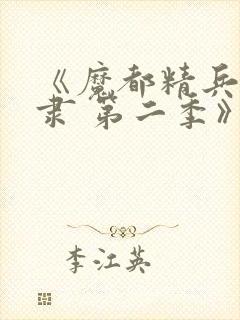 《魔都精兵
隶 第二季》
李江英